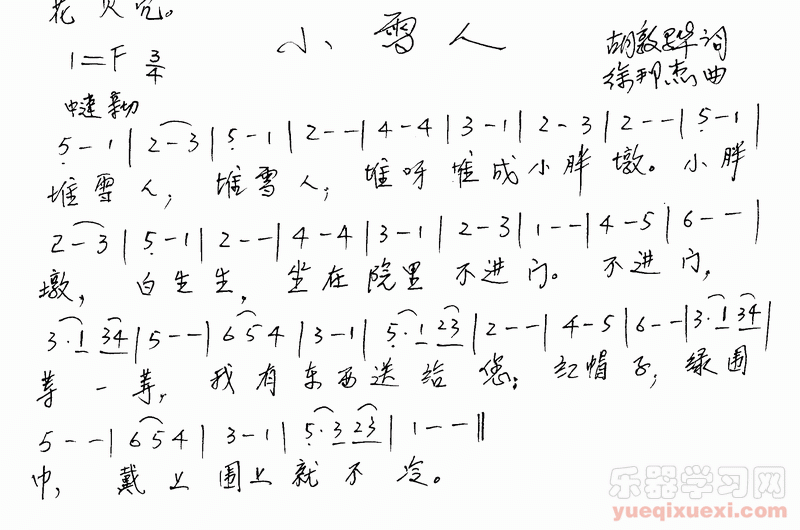 花 贝 咒。
小 雪 人
1=F 3/4
胡敦骅 词
徐邦杰 曲
中速 亲切
5 - 1 | 2 - 3 | 5 - 1 | 2 - - | 4 - 4 | 3 - 1 | 2 - 3 | 2 - - | 5 - 1 |
堆 雪 人, 堆 雪 人, 堆 呀 堆 成 小 胖 墩。 小 胖
2 - 3 | 5 - 1 | 2 - - | 4 - 4 | 3 - 1 | 2 - 3 | 1 - - | 4 - 5 | 6 - - |
墩, 白 生 生, 坐 在 院 里 不 进 门。 不 进 门,
3 · 1 3 4 | 5 - - | 6 5 4 | 3 - 1 | 5 · 1 2 3 | 2 - - | 4 - 5 | 6 - - | 3 · 1 3 4 |
等 一 等, 我 有 东 西 送 给 您; 红 帽 子, 绿 围
5 - - | 6 5 4 | 3 - 1 | 5 · 3 2 3 | 1 - - ‖
巾, 戴 上 围 上 就 不 冷。
乐器学习网
yueqixuexi.com